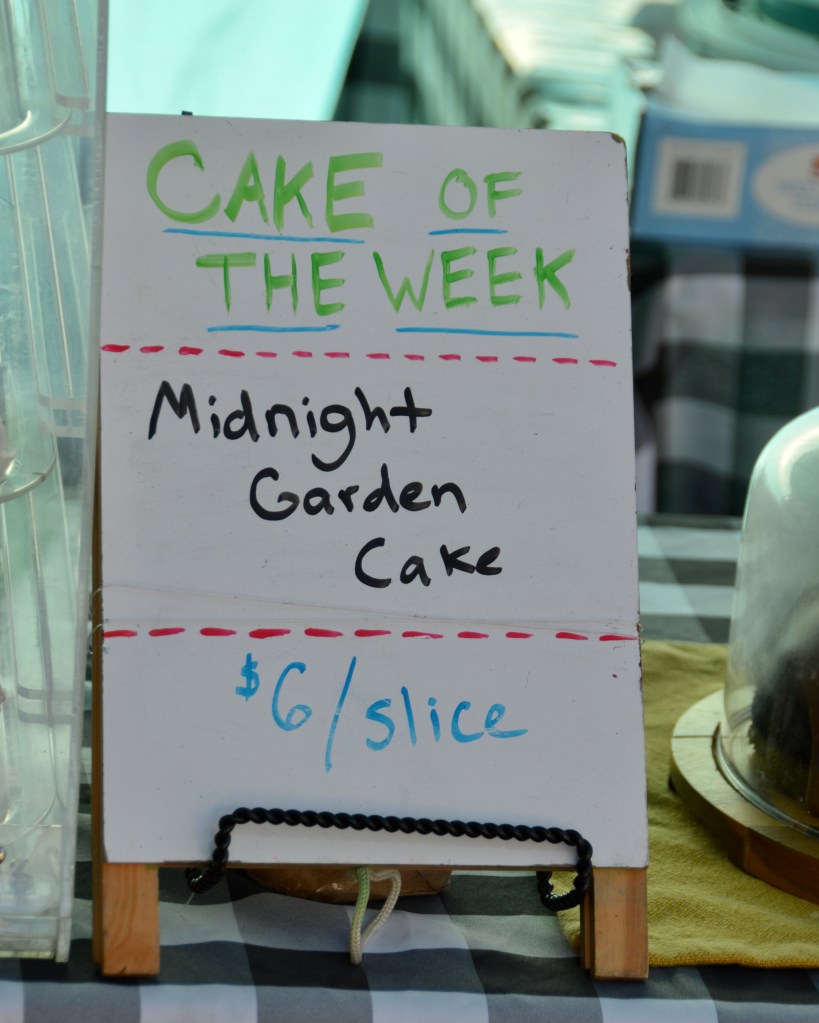 CAKE OF
THE WEEK
Midnight
Garden
Cake
$6/slice